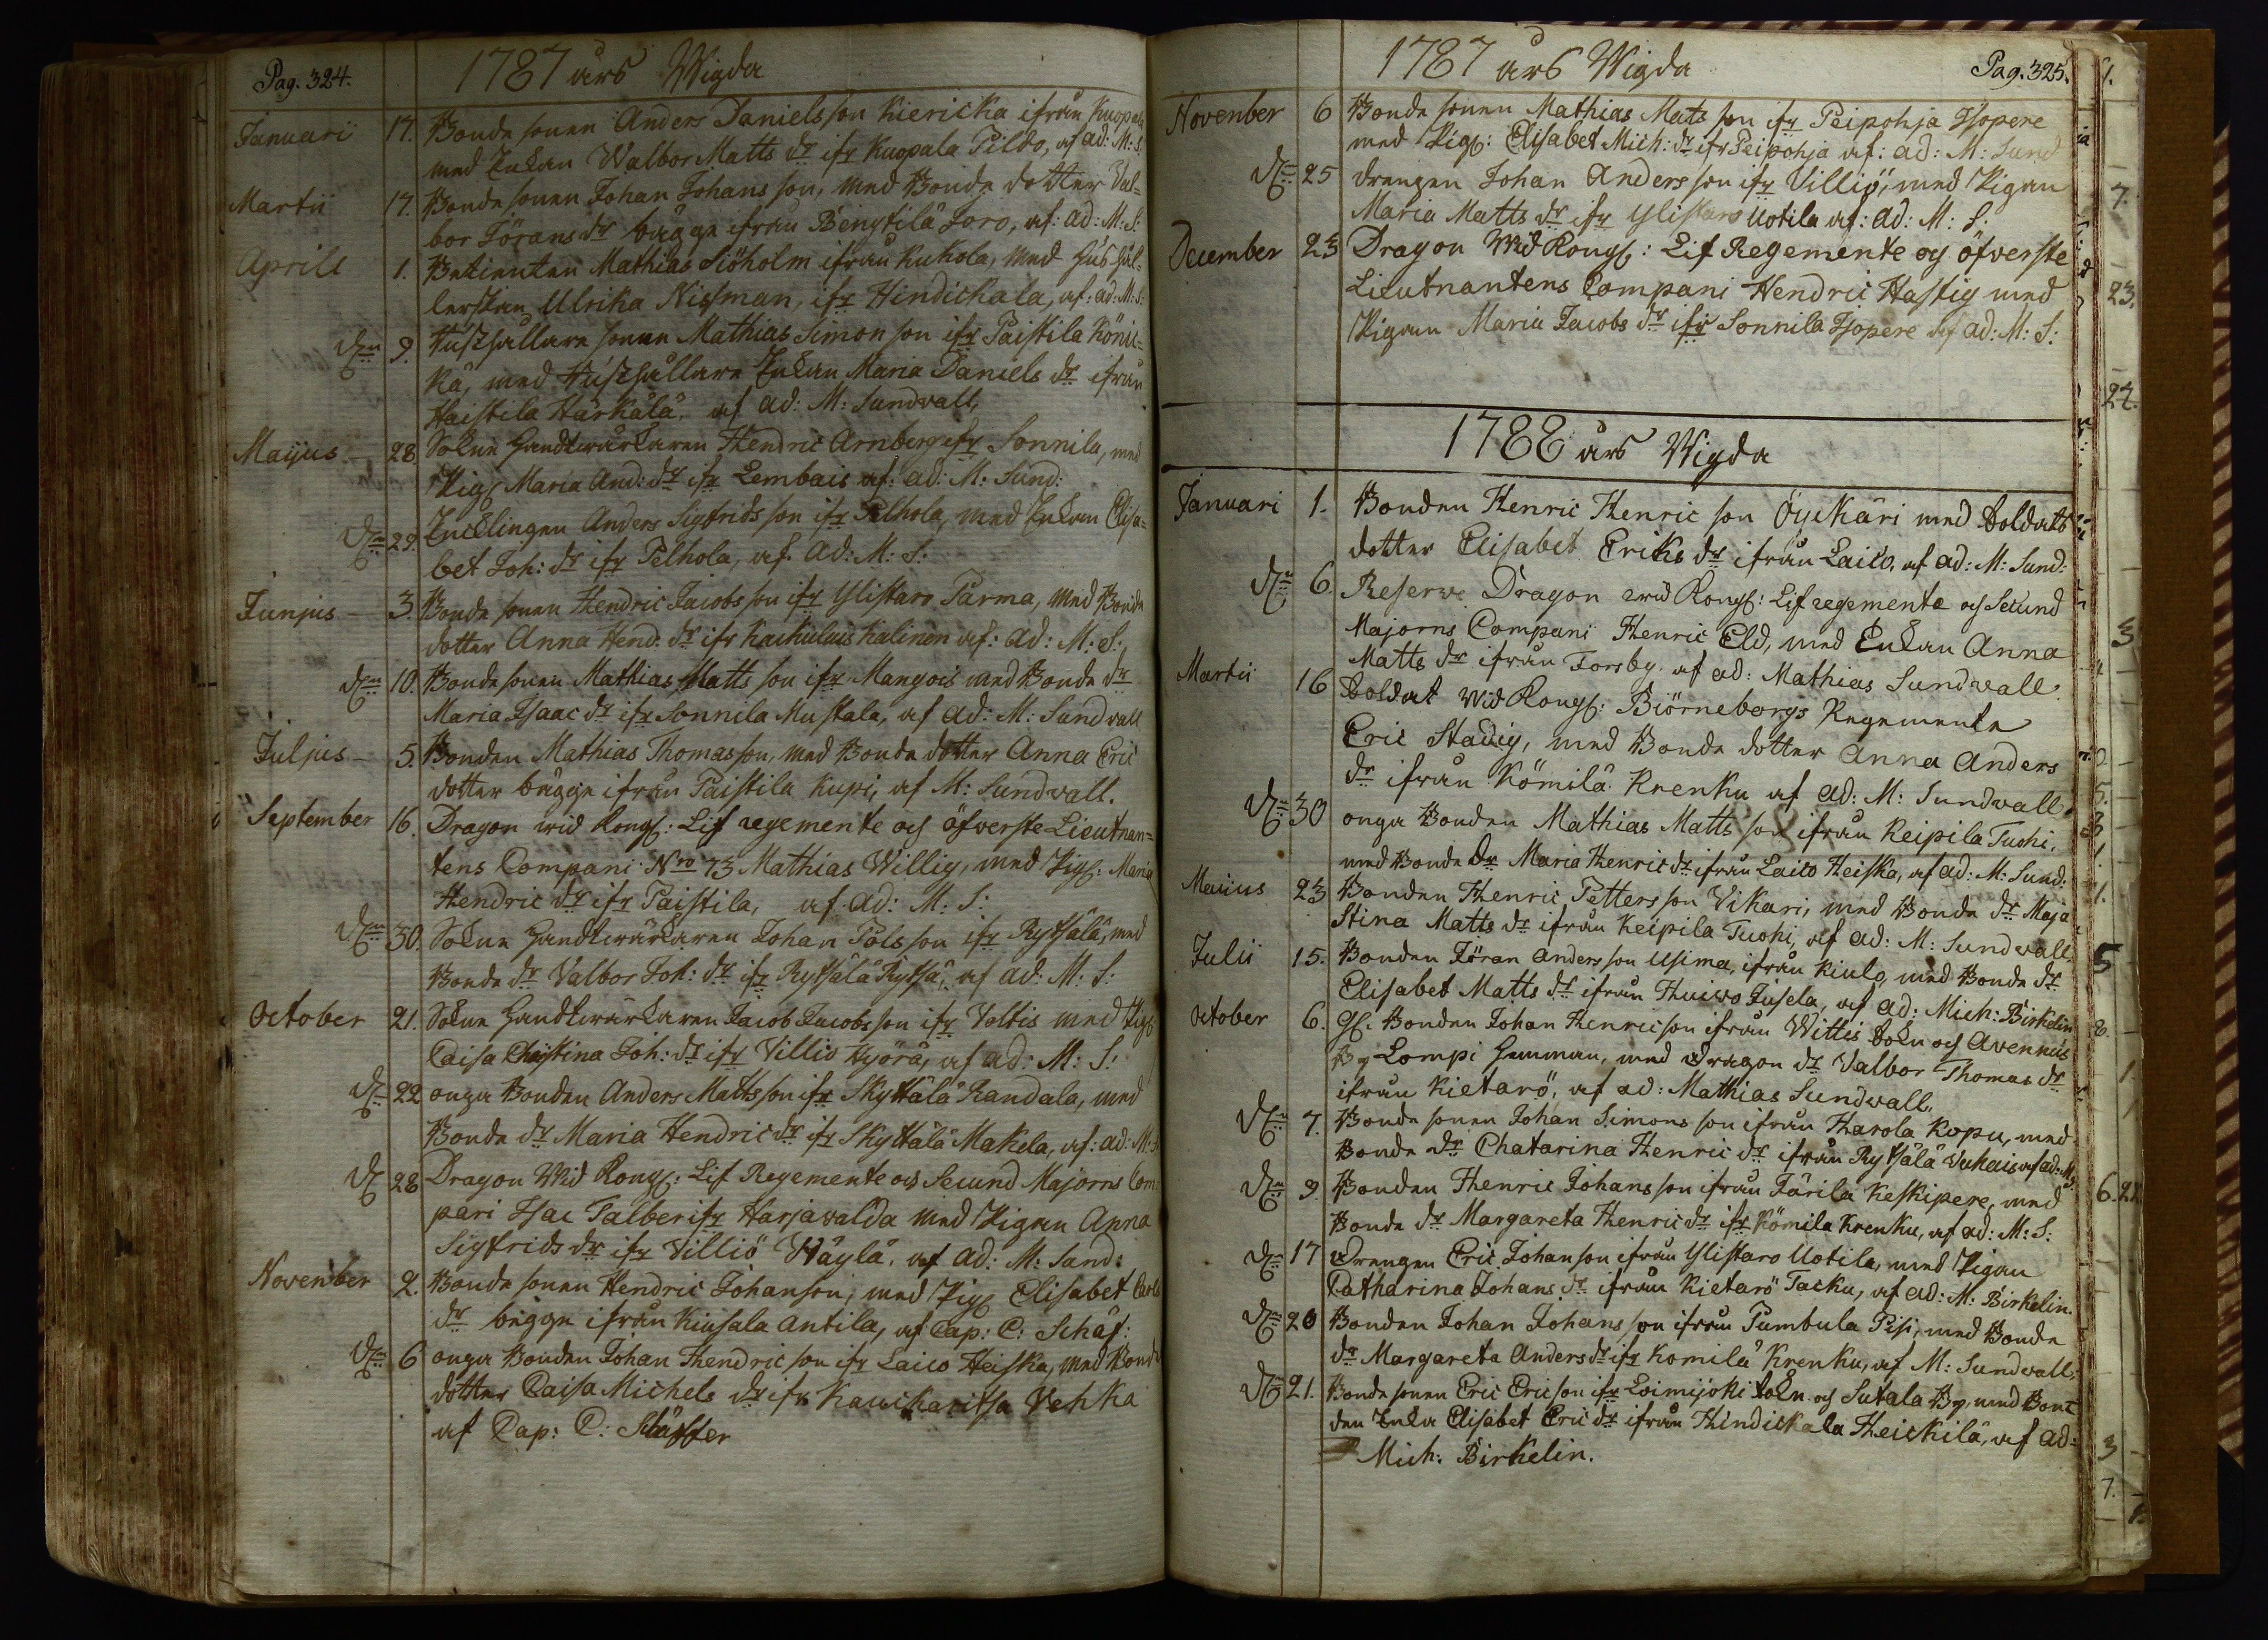 Pag. 324. 1787 års Wigda
Januarii 17. Bonde sonen Anders Danielsson Kiericka ifrån Kuopala
med Enkan Walbor Matts dr ifr Kuopala Pildo, af ad: M: S.
Martii 17. Bonde sonen Johan Johans son, med Bonde dotter Val-
bor Jörans dr bägge ifrån Bengtilä Joro, af: ad: M: S:
Aprill 1. Betienten Mathias Siöholm ifrån Kukola, med Hushål-
lerskan Ulrika Nissman, ifr Hindickala, af: ad: M: S:
Den 9. Hushållare sonen Mathias Simon son ifr Paistila Könic-
kä, med Hushållare Enkan Maria Daniels dr ifrån
Haistila Härkälä. af ad: M: Sundvall,
Maijus 28. Sokne Handtwärkaren Hendric Arnberg ifr Sonnila, med
Pig: Maria And: dr ifr Lembais af: ad: M: Sund:
Den 29. Encklingen Anders Sigfrids son ifr Pelhola, med Enkan Elisa-
bet Joh: dr ifr Pelhola, af. ad: M: S:
Junjus 3. Bonde sonen Hendric Jacobs son ifr Ylistaro Parma, med Bonde
dotter Anna Hend: dr ifr Kackulais Kalinen af: ad: M: S:
Den 10. Bonde sonen Mathias Matts son ifr Mangois med Bonde dr
Maria Isaac dr ifr Sonnila Mustala, af ad: M: Sundvall
Juljus 5. Bonden Mathias Thomas son, med Bonde dotter Anna Eric
dotter bägge ifrån Paistila Kupi, af M: Sundvall.
September 16. Dragon wid Kongl: Lif regemente och öfverste Lieutnan-
tens Compani Nro 73 Mathias Willig, med Pig: Maria
Hendric dr ifr Paistila, af ad: M: S:
Den 30. Sokne Handtwärkaren Johan Pols son ifr Rytsälä, med
Bonde dr Valbor Joh: dr ifr Rytsälä Rytsä, af ad: M: S:
October 21. Sokne Handtwärkaren Jacob Jacobs son ifr Voltis med Pig
Caisa Christina Joh: dr ifr Villio Hyörä, af ad: M: S:
Den 22 onga Bonden Anders Matts son ifr Skyttälä Randala, med
Bonde dr Maria Hendric dr ifr Skyttälä Makela, af: ad: M: S
Den 28 Dragon Wid Kongl: Lif Regemente och Secund Majorns Com
pani Isac Talber ifr Harjawalda med Pigan Anna
Sigfrids dr ifr Villiö Häylä. af ad: M: Sund:
November 2. Bonde sonen Hendric Johanson, med Pig Elisabet Carls
dr bägge ifrån Kiusala Antila, af Cap: C: Schäf:
Den 6 onga Bonden Johan Hendric son ifr Laico Heiska, med Bonde
dotter Caisa Michels dr ifr Kaucharitsa Vehka
af Cap: C: Schäffer
1787 års Wigda Pag. 325.
November 6 Bonde sonen Mathias Mats son ifr Peipohja Isopere
med Pig: Elisabet Mich: dr ifr Peipohja af: ad: M: Sund
Den 25 drengen Johan Anders son ifr Villiö, med Pigan
Maria Matts dr ifr Ylistaro Uotila af: ad: M: S:
December 23 Dragon Wid Kongl: Lif Regemente och öfverste
Lieutnantens Compani Hendric Hastig med
Pigan Maria Jacobs dr ifr Sonnila Isopere af ad: M: S:
1788 års Wigda
Januari 1. Bonden Henric Henric son Öyckäri med Soldats
dotter Elisabet Eriks dr ifrån Laico, af ad: M: Sund:
Den 6. Reserve Dragon wid Kongl: Lif regemente och Secund
Majorns Compani Henric Eld, med Enkan Anna
Matts dr ifrån Forsby. af ad: Mathias Sundvall
Martii 16 Soldat Wid Kongl: Biörneborgs Regemente
Eric Stadig, med Bonde dotter Anna Anders
dr ifrån Kömilä Krenku af ad: M: Sundvall
Den 30 onga Bonden Mathias Matts son ifrån Keipila Tuohi,
med Bonde dr Maria Henric dr ifrån Laico Heiska, af ad: M: Sund:
Maiius 23 Bonden Henric Petters son Vikari, med Bonde dr Maja
Stina Matts dr ifrån Keipila Tuohi, af ad: M: Sundvall
Julii 15. Bonden Jöran Anders son Usima, ifrån Kiulo, med Bonde dr
Elisabet Matts dr ifrån Thuivo Jusela, af ad: Mich: Birkelin
October 6. Bonden Johan Henric son ifrån Wittis Sokn och Avennus
By Lompi Hemman, med Dragon dr Valbor Thomas dr
ifrån Kietarö, af ad: Mathias Sundvall.
Den 7. Bonde sonen Johan Simons son ifrån Harola Kopu, med
Bonde dr Chatarina Henric dr ifrån Rytsälä Vuhais af ad: M: S
Den 9 Bonden Henric Johans son ifrån Järila Keskipere, med
Bonde dr Margareta Henric dr ifr Kömila Krenku, af ad: M: S:
Den 17 Drengen Eric Johan son ifrån Ylistaro Uotila, med Pigan
Catharina Johans dr ifrån Kietarö Tacku, af ad: M: Birkelin.
Den 20 Bonden Johan Johans son ifrån Pumbula Pisi, med Bonde
dr Margareta Anders dr ifr Komilä Krenku, af M: Sundvall,
Den 21. Bonde sonen Eric Eric son ifr Loimijoki sokn och Sutala By, med Bon-
den Enka Elisabet Eric dr ifrån Hindickala Heickilä, af ad:
Mich: Birkelin.